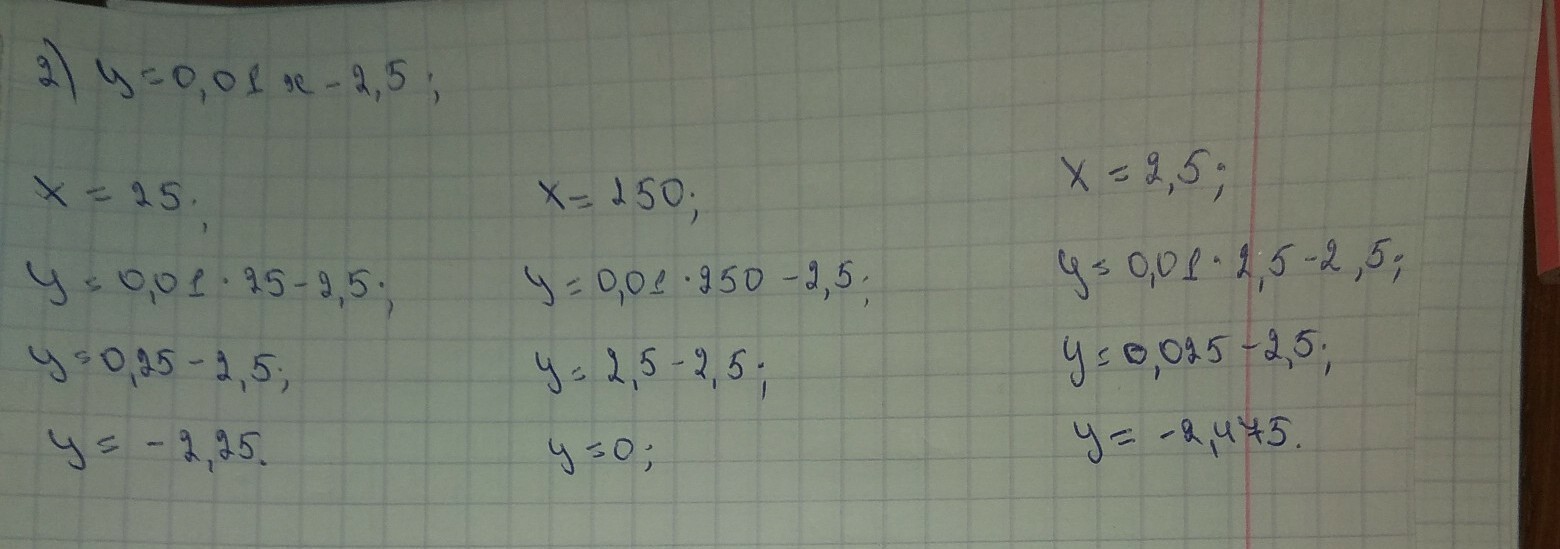 2) y=0,01x-2,5;
x = 25;
y = 0,01·25-2,5;
y=0,25-2,5;
y = -2,25.
x= 250;
y= 0,01·250-2,5;
y= 2,5-2,5;
y=0;
x = 2,5;
y= 0,01·2,5-2,5;
y= 0,025-2,5;
y= -2,475.